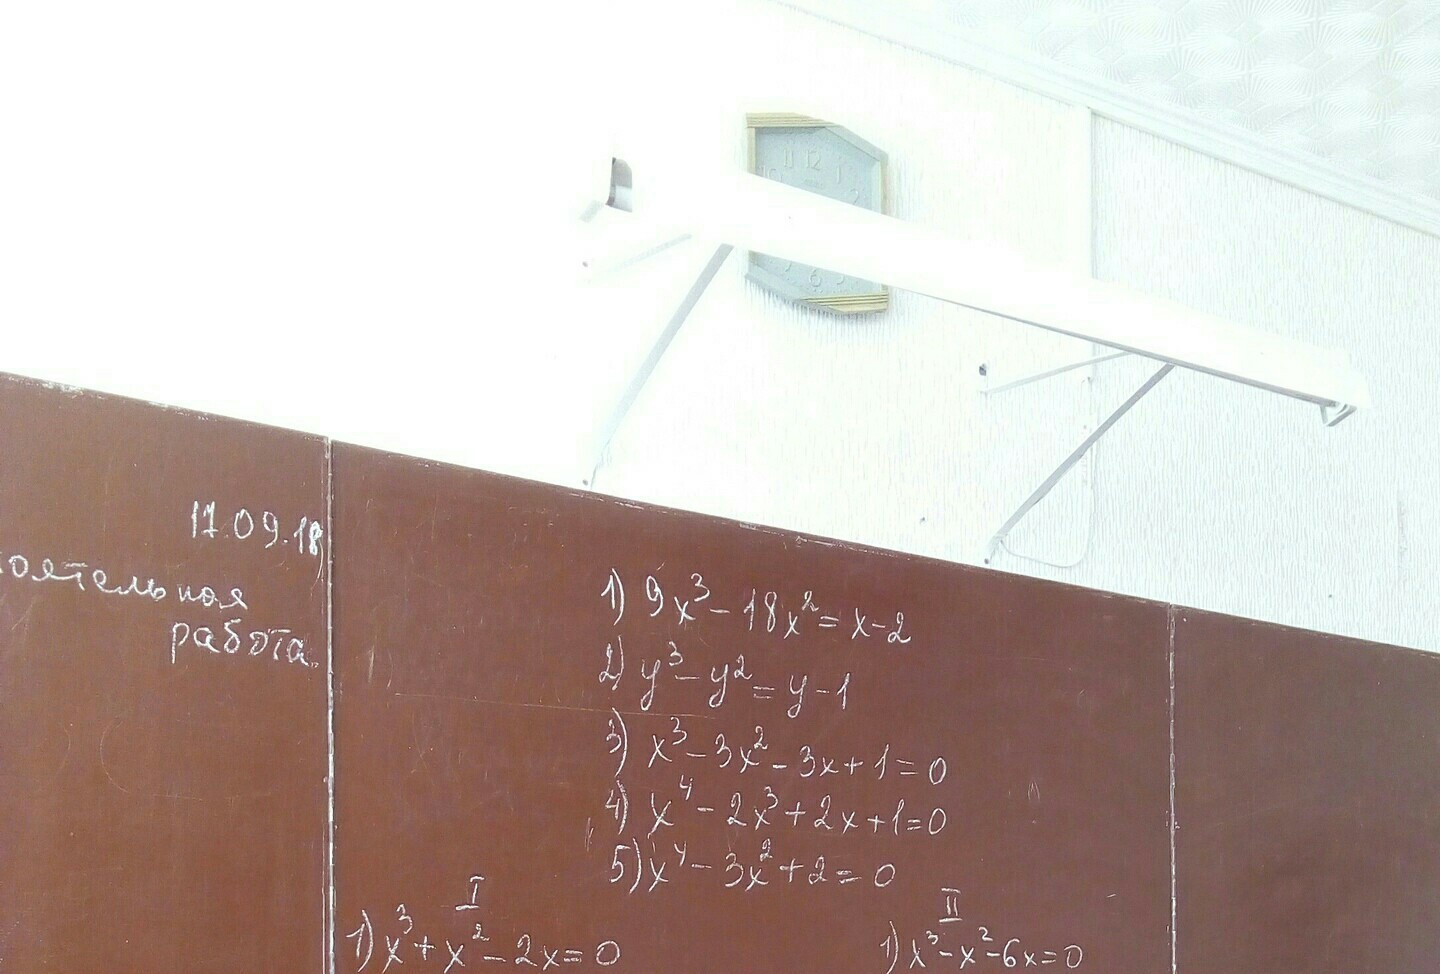 17.09.18
оятельная
работа.
1) 9x³ - 18x² = x - 2
2) y³ - y² = y - 1
3) x³ - 3x² - 3x + 1 = 0
4) x⁴ - 2x³ + 2x + 1 = 0
5) x⁴ - 3x² + 2 = 0
I
1) x³ + x² - 2x = 0
II
1) x³ - x² - 6x = 0
11 12 1
10 2
6 5